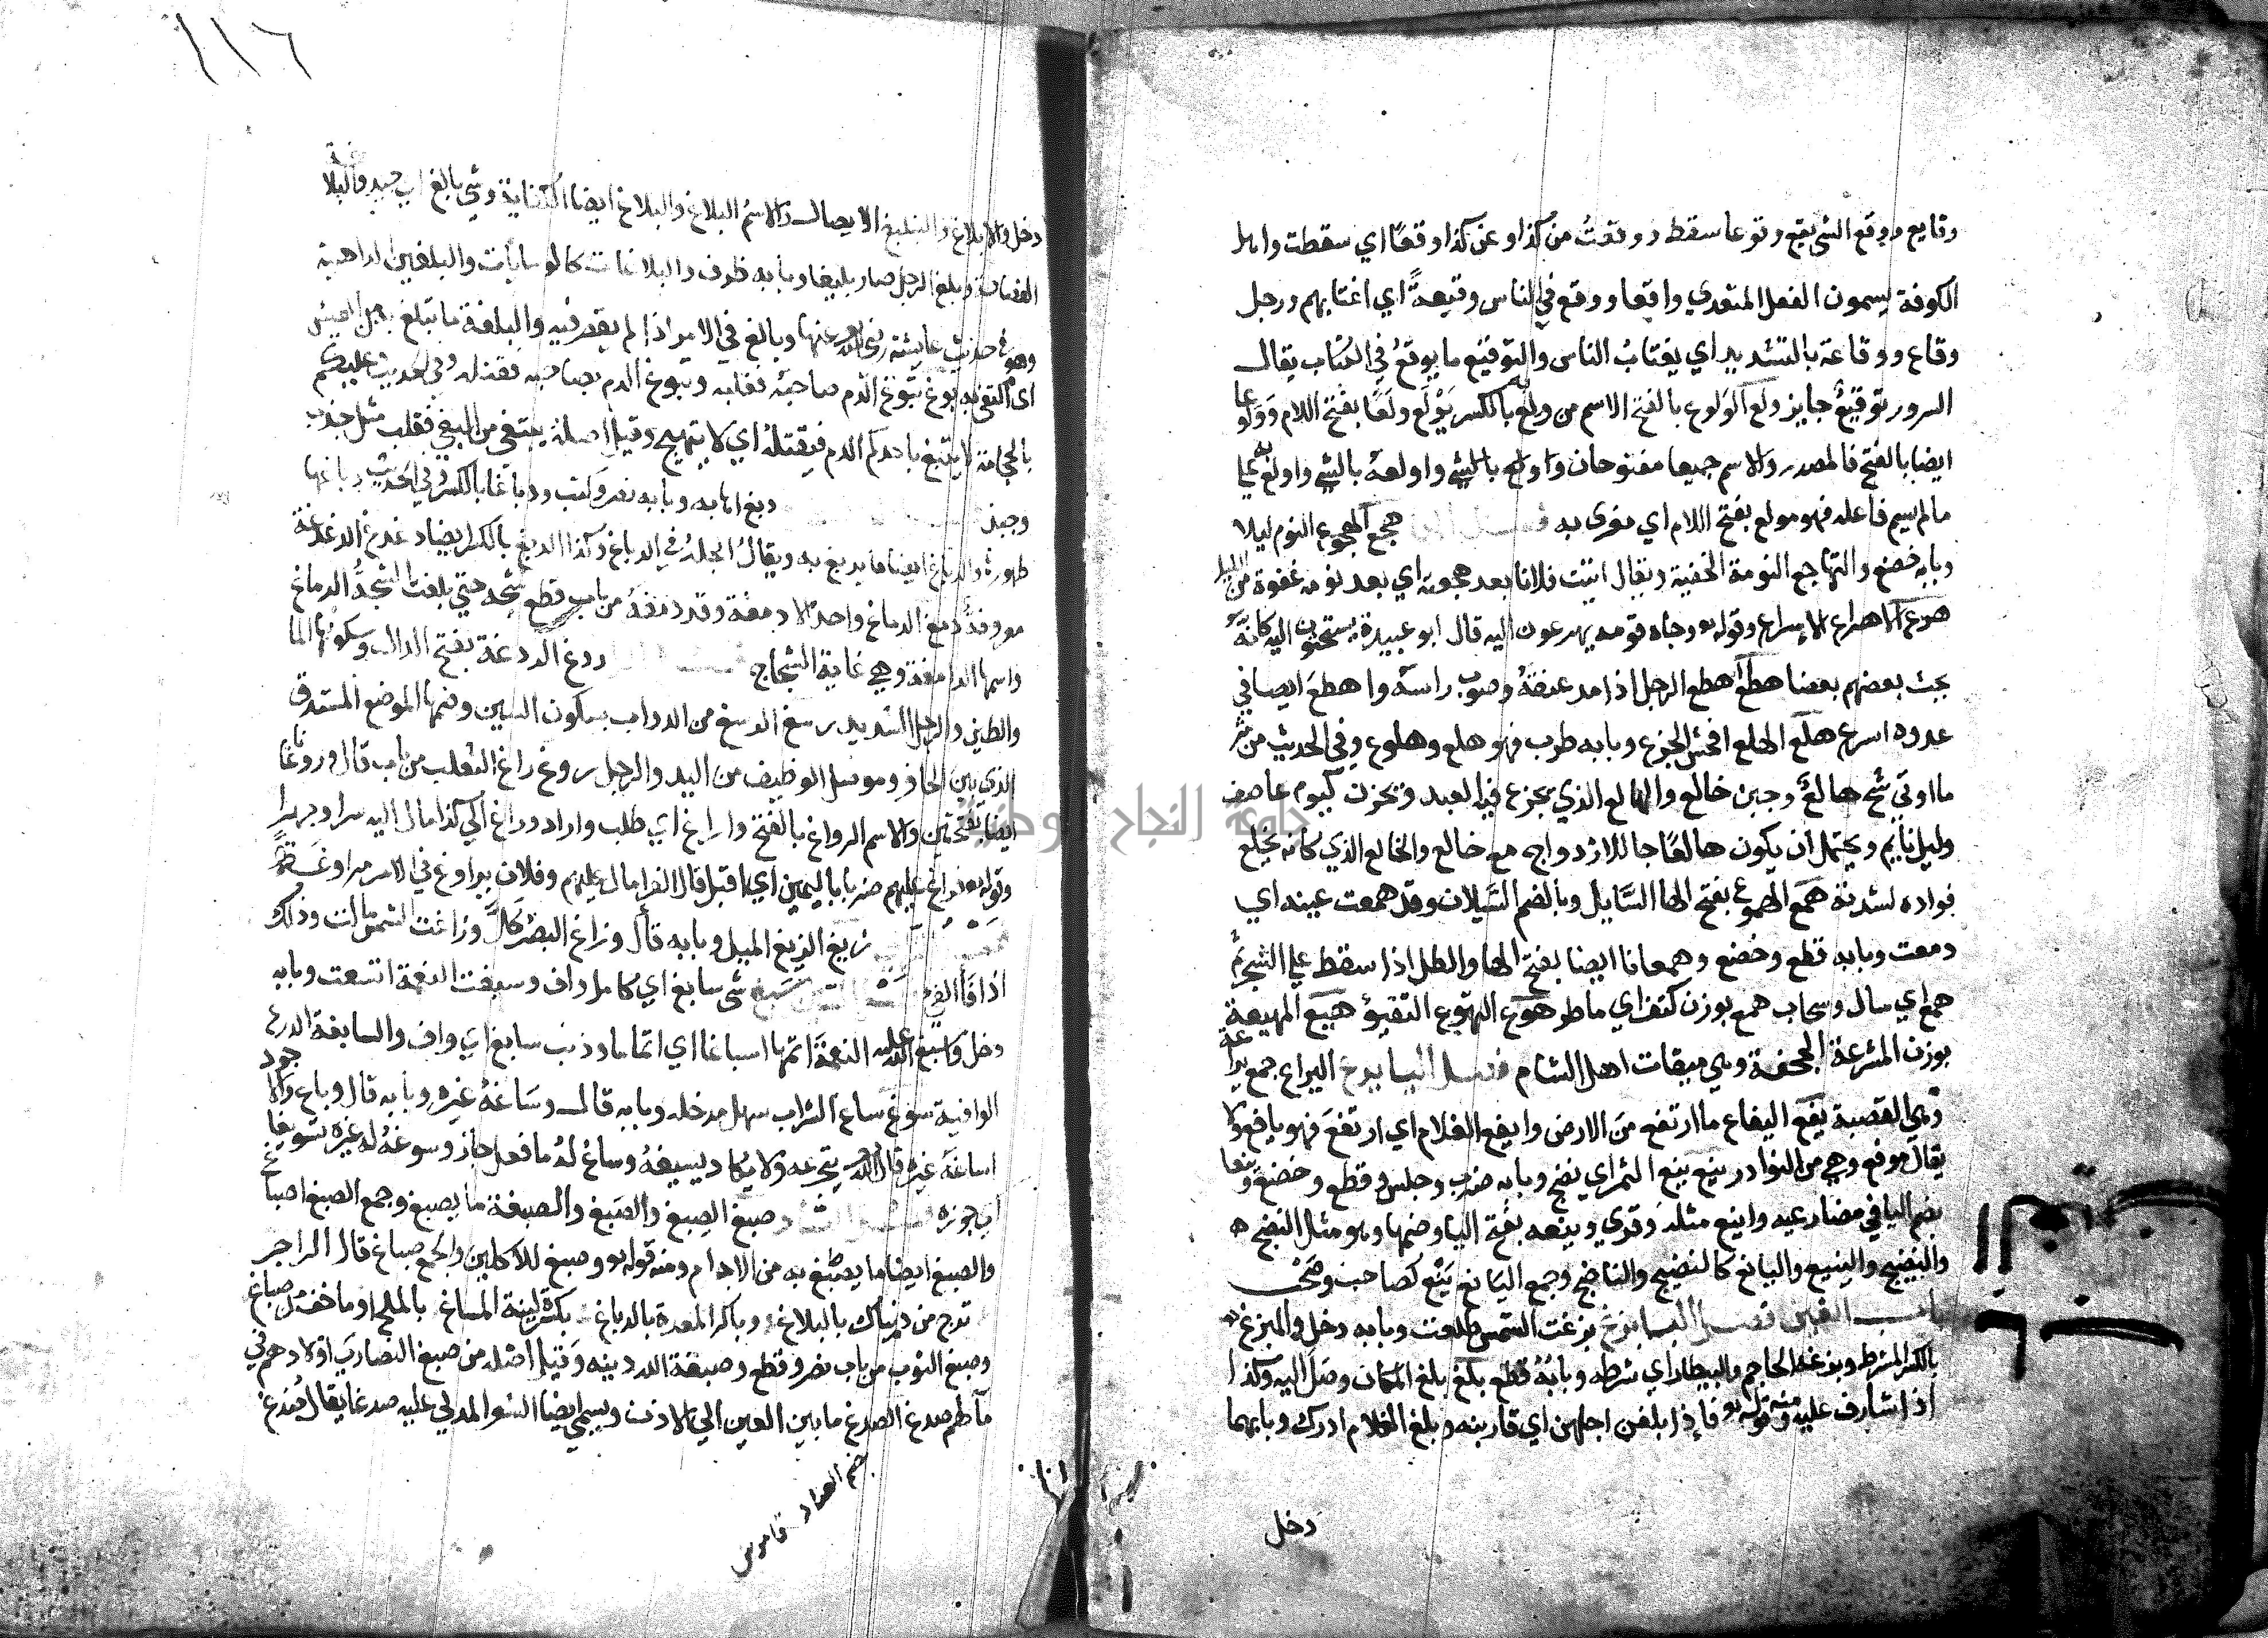 وقايع ووقع الشى يقع وقوعا سقط ووقعتُ من كذا وعن كذا وقعًا اي سقطت واهل
الكوفة يسمون الفعل المتعدي واقعا ووقع في الناس وقيعةً اي اغتابهم ورجل
وقاع ووقاعة بالتشديد اي يغتاب الناس والتوقيع ما يوقع في الكتاب يقال
السرور توقيع جايز ولع الولوع بالفتح الاسم من ولع به بالكسر يَوْلَع ولَعًا بفتح اللام وَوَلوعا
ايضا بالفتح فالمصدر والاسم جميعا مفتوحان واولع بالشي واولعه بالشي واولع به على
مالم يسم فاعله فهو مولع بفتح اللام اي مغرى به فصل الها هجع الهجوع النوم ليلا
وبابه خضع والتهاجع النومة الخفيفة ويقال اتيت فلانا بعد هجعة اي بعد نومه خفيفة من الليل
هرع الاهراع الاسراع وقوله تع وجاه قومه يهرعون اليه قال ابو عبيدة يستحثون اليه كانه
يحث بعضهم بعضا هطع اهطع الرجل اذا مد عنقه وصوب راسه واهطع ايضا في
عدوه اسرع هلع الهلع افحش الجزع وبابه طرب فهو هلع وهلوع وفي الحديث من شر
ما اوتي شح هالع وجبن خالع والهالع الذي يجزع فيه العبد ويحزن كيوم عاصف
وليل نايم ويحتمل ان يكون هالعًا جا للازدواج مع خالع والخالع الذي كانه يخلع
فواده لشدته همع الهموع بفتح الها السَّايل وبالضم السَّيلان وقد همعت عينه اي
دمعت وبابه قطع وخضع وهمعانا ايضا بفتح الها والطل اذا سقط على الشجر ثم
همع اي سال وسحاب همع بوزن كتف اي ماطر هوع التهوع التقيؤ هيع المهيعة
بوزن المشرعة الجحفة وهي ميقات اهل الشام فصل اليا يرع اليراع جمع يراعة
وهي القصبة يفع اليفاع ما ارتفع من الارض وايفع الغلام اي ارتفع فهو يافع ولا
يقال موفع وهي من النوادر ينع ينع الثمر اي نضج وبابه ضرب وجلس وقطع وخضع وينعا
بضم اليا في مضارعيه واينع مثله وقري وينعه بفتح اليا وضمها وهو مثل النضج
والنضيج والينيع واليانع كالنضيج والناضج وجمع اليانع يَنْع كصاحب وصَحْب
باب الغين فصل البا بزغ بزغت الشمس طلعت وبابه دخل والمبزغ
بالكسر المشرط وبزغ الحاجم والبيطار اي شرطه وبابه قطع بلغ بلغ المكان وصل اليه وكذا
اذا شارف عليه ومنه قوله تع فاذا بلغن اجلهن اي قاربنه وبلغ الغلام ادرك وبابهما
دخل
١١٦
دخل والابلاغ والتبليغ الايصال والاسم البلاغ والبلاغ ايضا الكفاية وشي بالغ اي جيد والبلاغة
الفصاحة وبلغ الرجل صار بليغا وبابه ظرف والبلاغات كالوشايات والبلغين الداهية
وهو في حديث عايشة رضي الله عنها وبالغ في الامر اذا لم يقصر فيه والبلغة ما يتبلغ به من العيش
بوغ تبوغ الدم صاحبه فغلبه وتبوغ الدم بصاحبه فقتله وفي الحديث عليكم
بالحجامة لا يتبيغ باحدكم الدم فيقتله اي لا يتهيج وقيل اصله يبتغي من البغي فقلب مثل جذب
وجبذ دبغ اهابه وبابه نصر وكتب ودباغا بالكسر وفي الحديث دباغها
طهورها والدباغ ايضا ما يدبغ به ويقال الجلد في الدباغ وكذا الدبغ بالكسر ايضا دغدغ الدغدغة
معروفة دمغ الدماغ واحد الادمغة وقد دمغه من باب قطع شجه حتى بلغت الشجة الدماغ
واسمها الدامغة وهي غاية الشجاج ردغ الردغة بفتح الدال وسكونها الما
والطين والوحل الشديد رسغ الرسغ من الدواب بسكون السين وضمها الموضع المستدق
الذي بين الحافر وموصل الوظيف من اليد والرجل روغ راغ الثعلب من باب قال وروغانا
ايضا بفتحتين والاسم الرواغ بالفتح واراغ اي طلب واراد وراغ الى كذا مال اليه سرا وجهرا
وقوله تع فراغ عليهم ضربا باليمين اي اقبل قال الفرا مال عليهم وفلان يراوغ في الامر مراوغة
زيغ الزيغ الميل وبابه قال وزاغ البصر كَلَّ وزاغت الشمس مالت وذلك
اذا فا الفي سبغ شى سابغ اي كامل واف وسبغت النعمة اتسعت وبابه
دخل واسبغ الله عليه النعمة اتمها اسباغا اي اتماما وذنب سابغ اي واف والسابغة الدرع
الوافية سوغ ساغ الشراب سهل مدخله وبابه قال وساغه غيره وبابه قال وباع والاجود
اساغه غيره قال الله تع يتجرعه ولا يكاد يسيغه وساغ له ما فعل جاز وسوغه له غيره تسويغا
اي جوزه صبغ الصبغ والصَبغ والصبغة ما يصبغ وجمع الصبغ اصباغ
والصبغ ايضا ما يصطبغ به من الادام ومنه قوله تع وصبغ للآكلين والجمع صباغ قال الراجز
تزج من دنياك بالبلاغ وباكر المعدة بالدباغ بكسرة لينة المساغ بالملح او ما خف من صباغ
وصبغ الثوب من باب نصر وقطع وصبغة الله دينه وقيل اصله من صبغ النصارى اولادهم في
مآ لهم صدغ الصدغ ما بين العين الى الاذن ويسمى ايضا الشعر المدلي عليه صدغا يقال صدغ
بضم الصاد قاموس